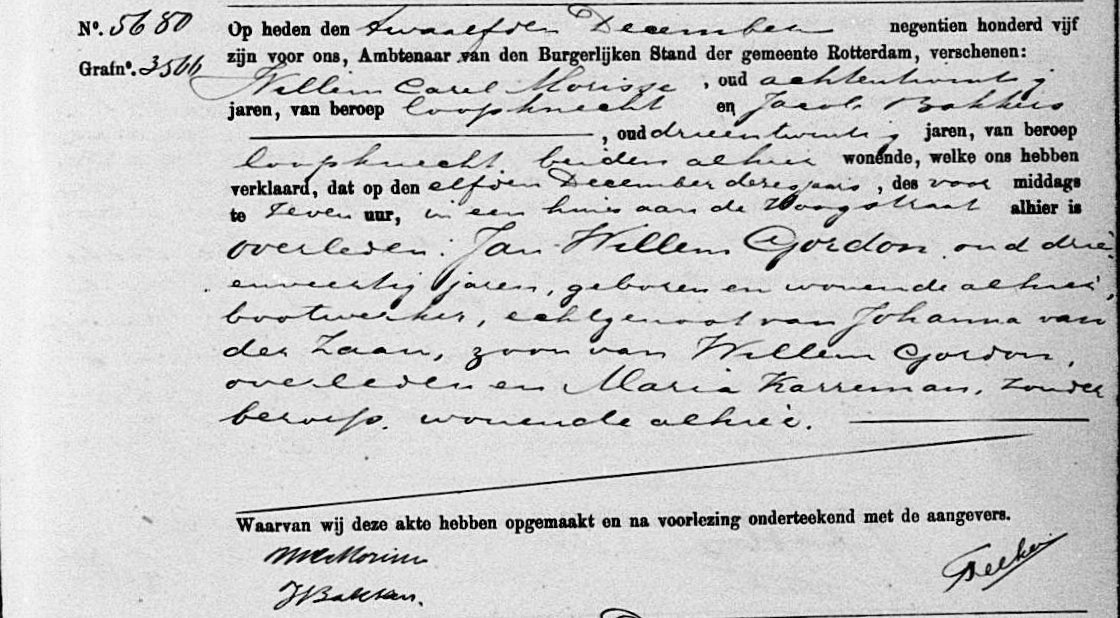 Nº. 5680
Grafnº. 3566
Op heden den twaalfden December negentien honderd vijf
zijn voor ons, Ambtenaar van den Burgerlijken Stand der gemeente Rotterdam, verschenen:
Willem Carel Morisse, oud achtentwintig
jaren, van beroep loopknecht en Jacob Bakkers
, oud drieentwintig jaren, van beroep
loopknecht beiden alhier wonende, welke ons hebben
verklaard, dat op den elfden December dezes jaars, des voor middags
te zeven uur, in een huis aan de Hoogstraat alhier is
overleden: Jan Willem Gordon oud drie
enveertig jaren, geboren en wonende alhier,
bootwerker, echtgenoot van Johanna van
der Zaan, zoon van Willem Gordon,
overleden en Maria Karreman, zonder
beroep, wonende alhier.
Waarvan wij deze akte hebben opgemaakt en na voorlezing onderteekend met de aangevers.
WC Morisse
J Bakkers.